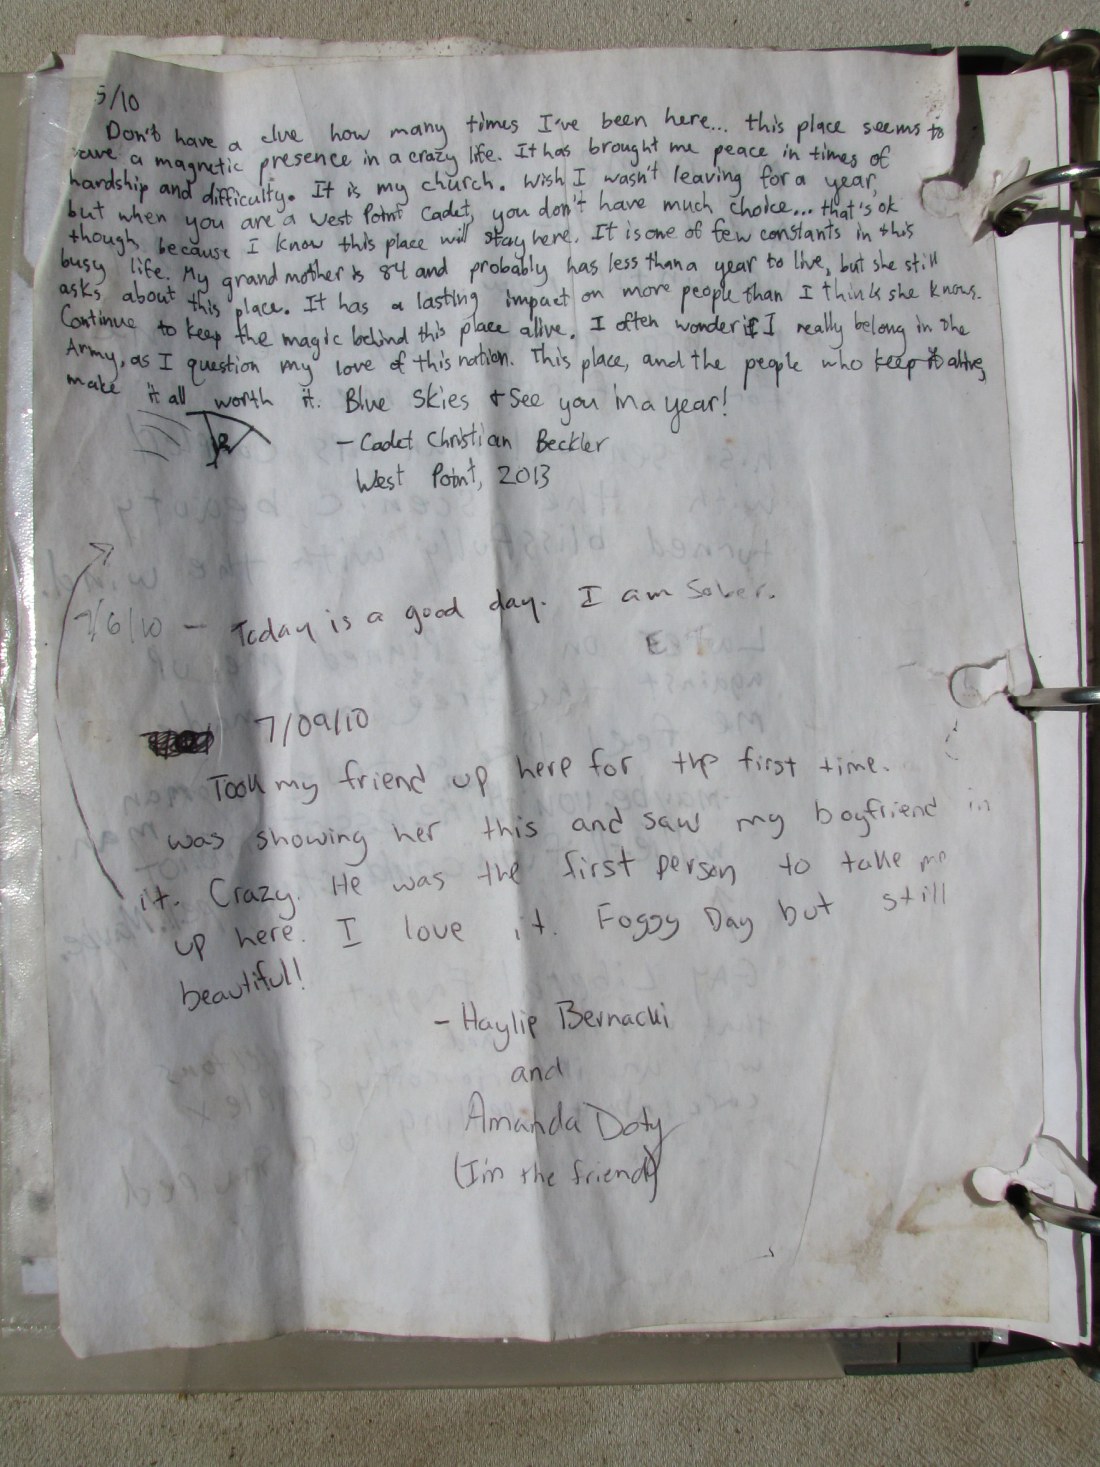 5/10
Don't have a clue how many times I've been here... this place seems to
have a magnetic presence in a crazy life. It has brought me peace in times of
hardship and difficulty. It is my church. Wish I wasn't leaving for a year,
but when you are a West Point Cadet, you don't have much choice... that's ok
though because I know this place will stay here. It is one of few constants in this
busy life. My grandmother is 84 and probably has less than a year to live, but she still
asks about this place. It has a lasting impact on more people than I think she knows.
Continue to keep the magic behind this place alive. I often wonder if I really belong in the
Army, as I question my love of this nation. This place, and the people who keep it alive,
make it all worth it. Blue Skies + See you in a year!
- Cadet Christian Beckler
West Point, 2013
7/6/10 - Today is a good day. I am Sober.
7/09/10
Took my friend up here for the first time.
was showing her this and saw my boyfriend in
it. Crazy. He was the first person to take me
up here. I love it. Foggy Day but still
beautiful!
- Haylie Bernacki
and
Amanda Doty
(I'm the friend)